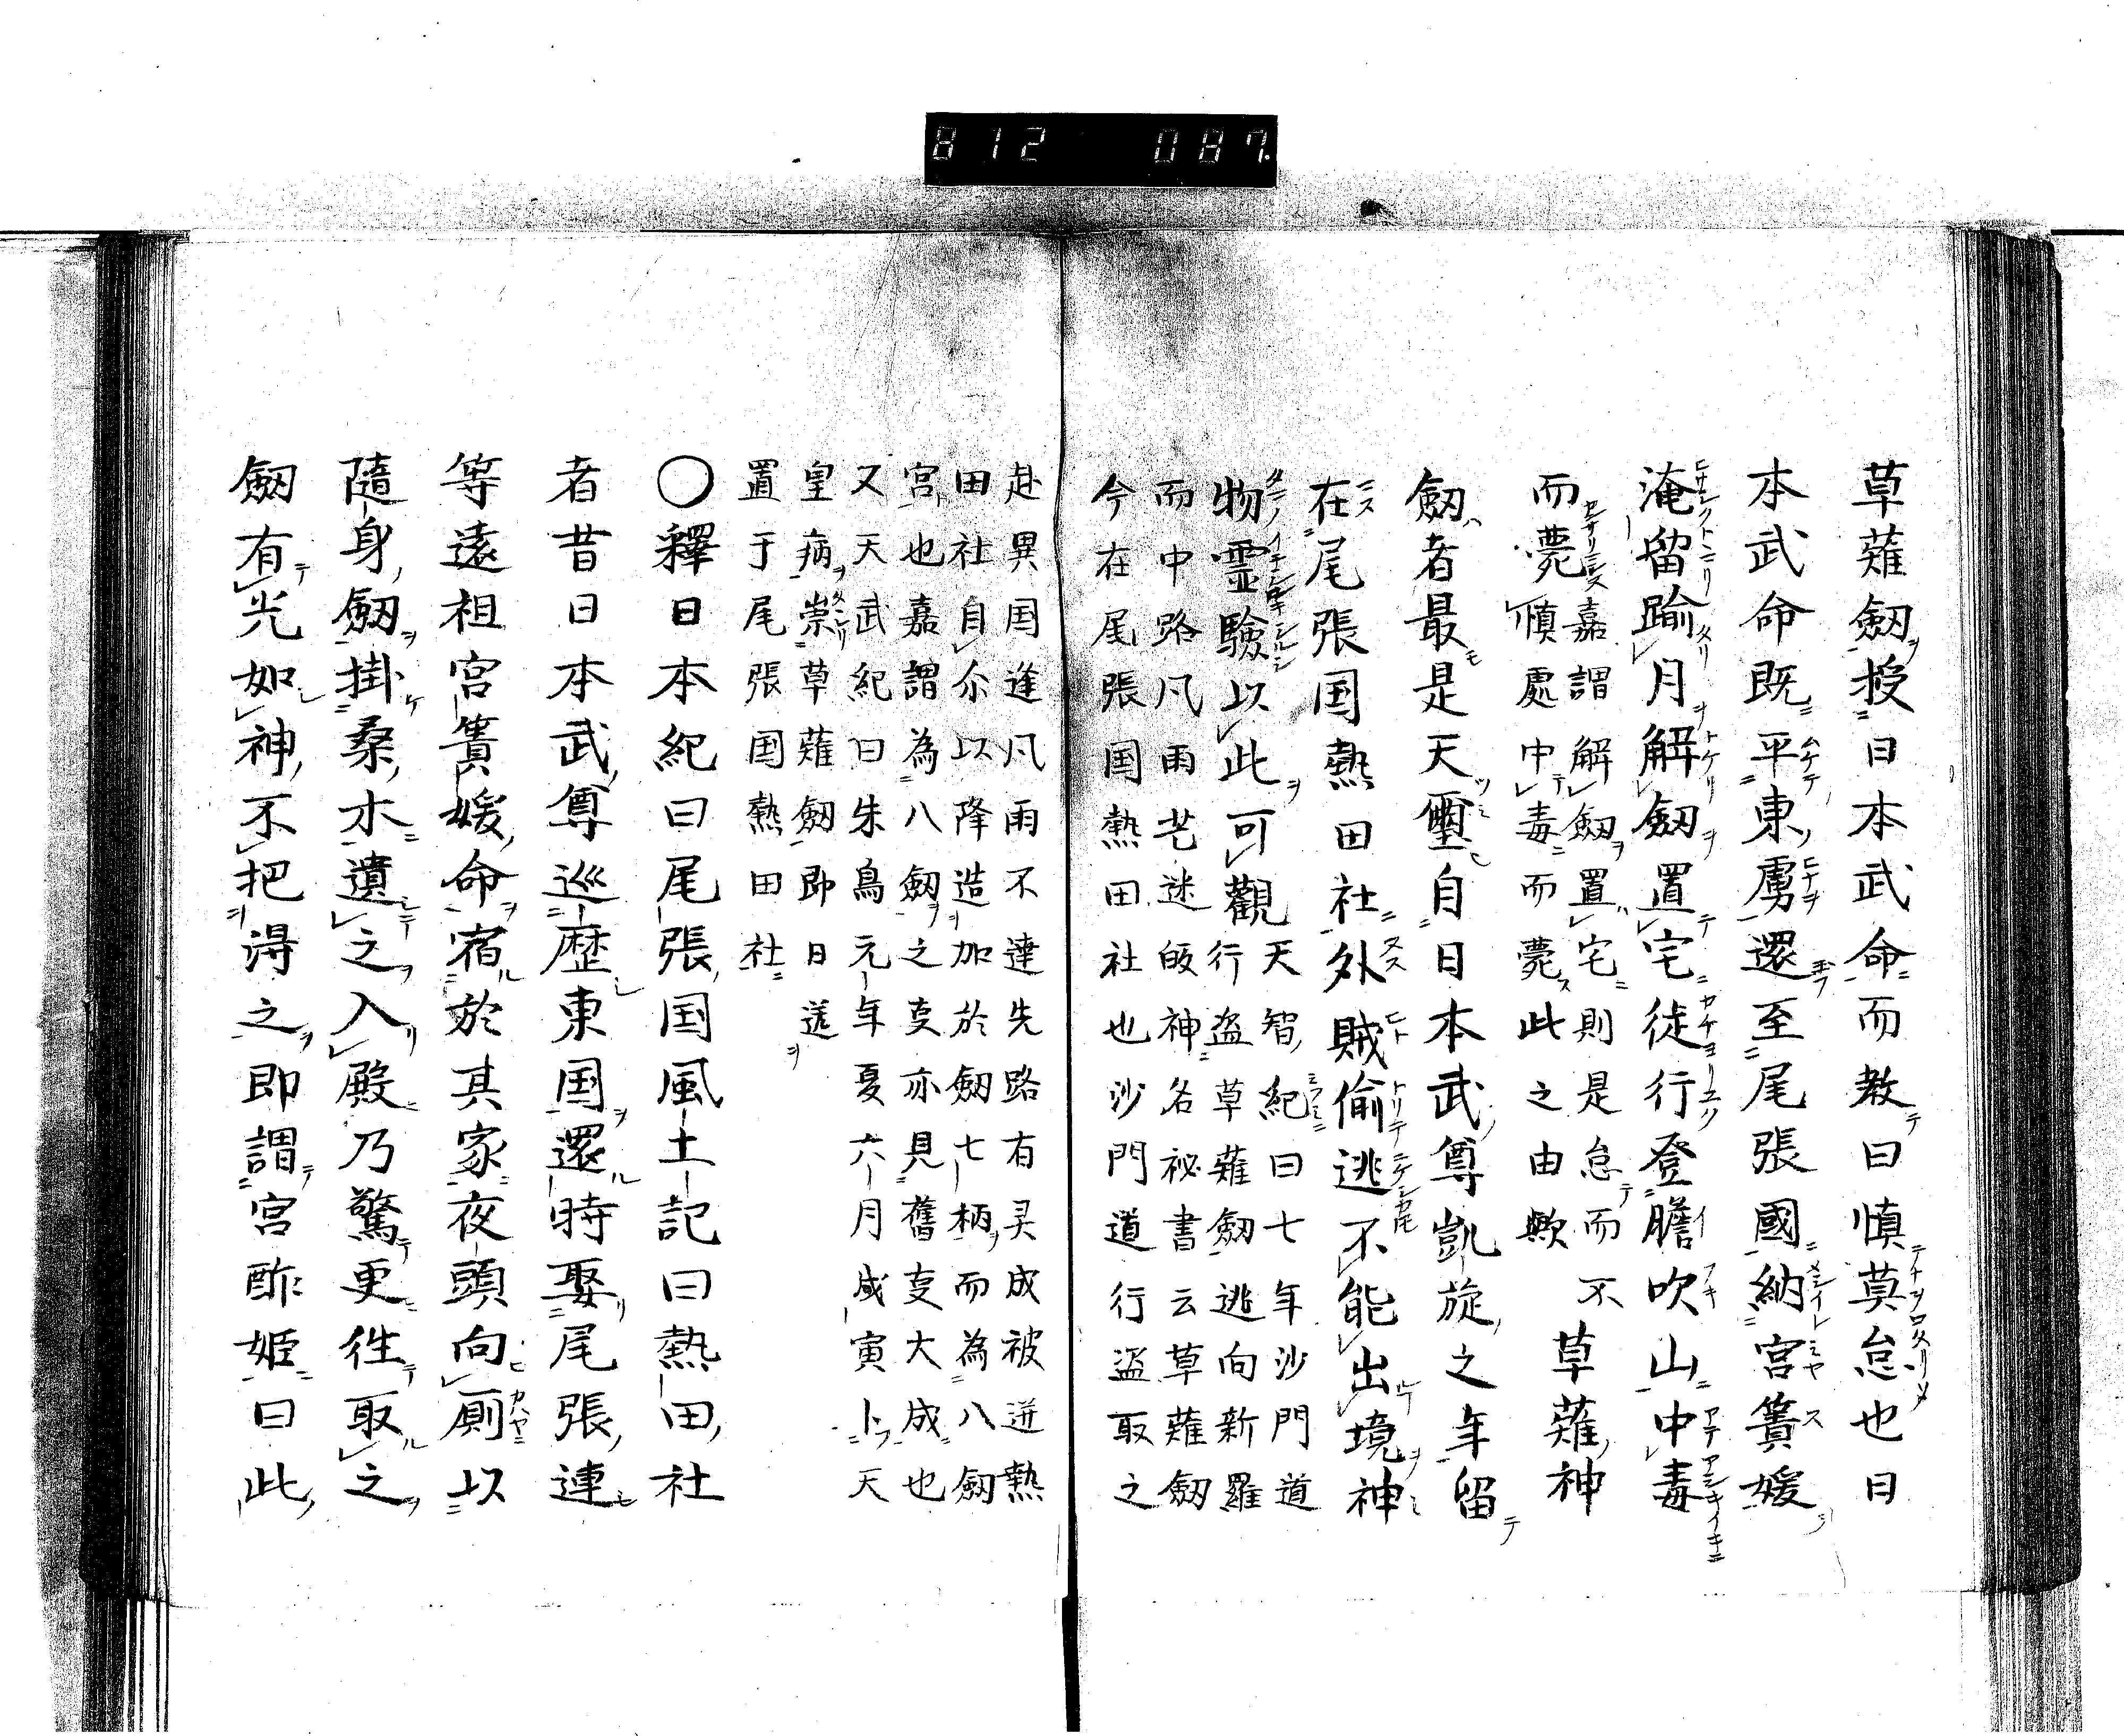 812 087.
草薙劔授日本武命而教曰慎莫怠也日
本武命既平東虜還至尾張國納宮簀媛
淹留踰月解劔置宅徒行登膽吹山中毒
而薨
嘉謂解劔置宅則是怠而不
慎處中毒而薨此之由歟
草薙神
劔者最是天璽自日本武尊凱旋之年留
在尾張国熱田社外賊偷逃不能出境神
物霊驗以此可觀
天智紀曰七年沙門道
行盗草薙劔逃向新羅
而中路凡雨芒迷皈神名祕書云草薙劔
今在尾張国熱田社也沙門道行盗取之
赴異国進凡雨不達先路有灵成被迸熱
田社自尓以降造加於劔七柄而為八劔
宮也嘉謂為八劔之叓亦見舊叓大成也
又天武紀曰朱鳥元年夏六月戊寅卜天
皇病祟草薙劔即日送
置于尾張国熱田社
○釋日本紀曰尾張国風土記曰熱田社
者昔日本武尊巡歴東国還時娶尾張連
等遠祖宮簀媛命宿於其家夜頭向厠以
隨身劔掛桒木遺之入殿乃驚更往取之
劔有光如神不把淂之即謂宮酢姫曰此